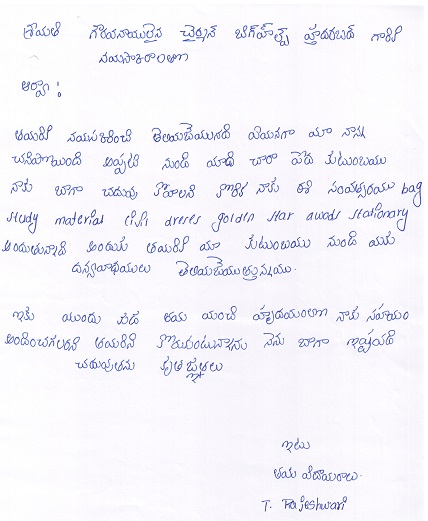 శ్రీమతి గౌరవనీయులైన చైర్మన్ బిగ్‌హెల్ప్ హైదరాబాద్ గారికి
నమస్కారాలతో
ఆర్యా :
తమరికి నమస్కరించి తెలియచేయునది ఏమనగా మా నాన్న
చనిపోయింది అప్పటి నుండి మాది చాలా పేద కుటుంబము
నాకు బాగా చదువు కోవాలని కోరిక నాకు ఈ సంవత్సరము bag
study material టీసి dress golden star awads stationary
అందుతున్నాది అందుకు తమరికి మా కుటుంబము నుండి మీకు
ధన్యవాధములు తెలియచేయుత్తున్నము.
ఇక ముందు కూడ తమ మంచి హృదయంతో నాకు సహాయం
అందించగలరని తమరిని కోరుకుంటున్నాను నేను బాగా ఇష్టపడి
చదువుతాను కృతజ్ఞతలు
ఇటు
తమ విదేయరాలు.
T. Rajeshwari